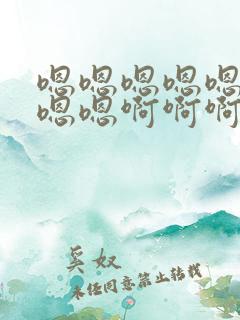 嗯嗯嗯嗯嗯
嗯嗯啊啊啊
奚奴
未经同意禁止转载